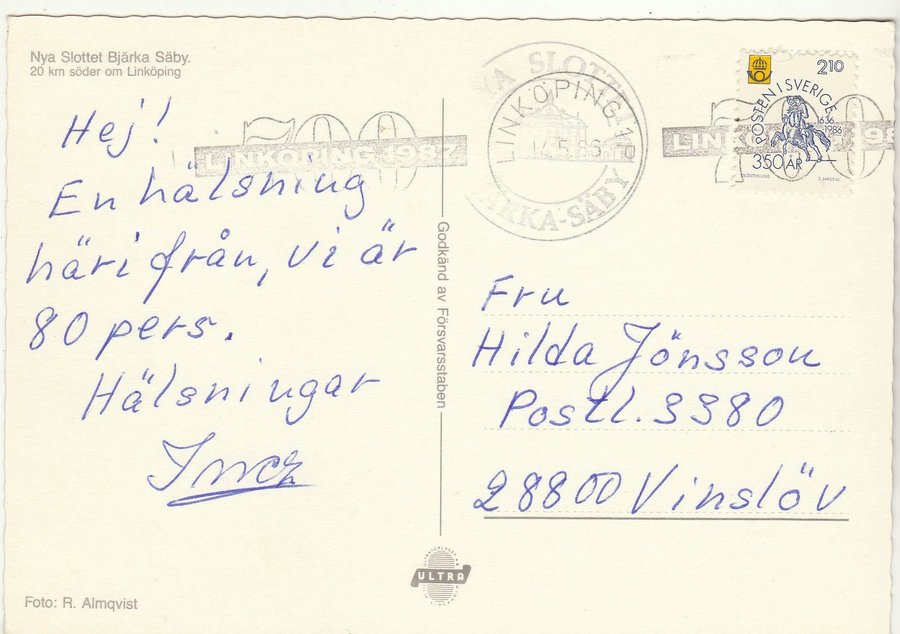 Nya Slottet Bjärka Säby.
20 km söder om Linköping
Hej!
En hälsning
härifrån, vi är
80 pers.
Hälsningar
Godkänd av Försvarsstaben
Foto: R. Almqvist
ULTRA
700
LINKÖPING 1987
NYA SLOTTET
BJÄRKA-SÄBY
LINKÖPING 1
14.5.86
700
LINKÖPING 198
210
POSTEN I SVERIGE
1636
1986
350 ÅR
Fru
Hilda Jönsson
Postl. 3380
28800 Vinslöv